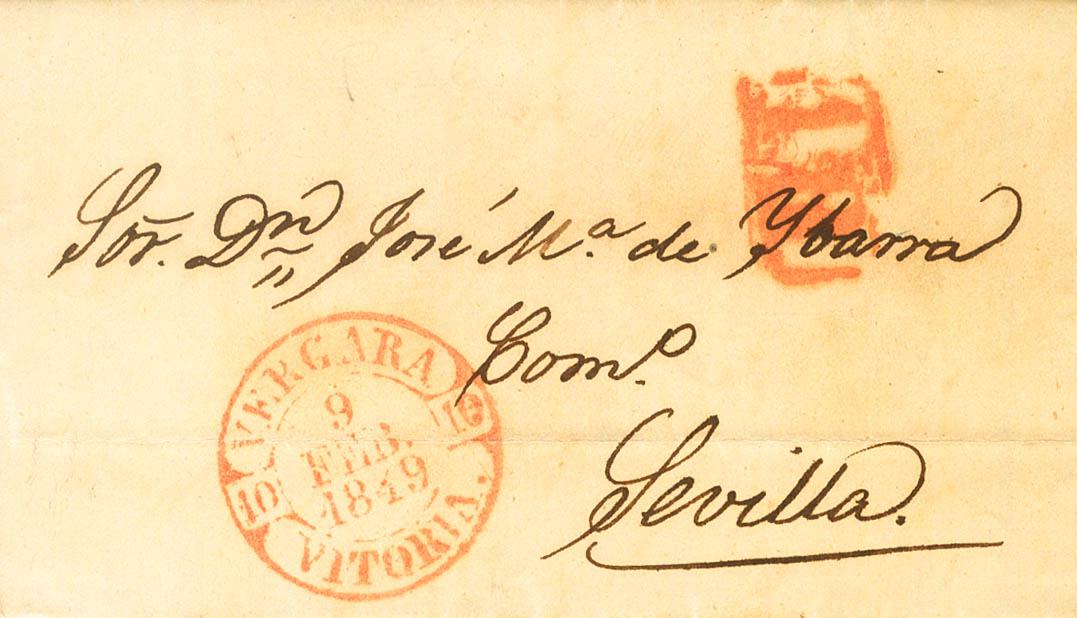 Sor. Dn José Mª de Ybarra
Com.º
Sevilla.
VERGARA
10
9
FEB.
1849
10
VITORIA.